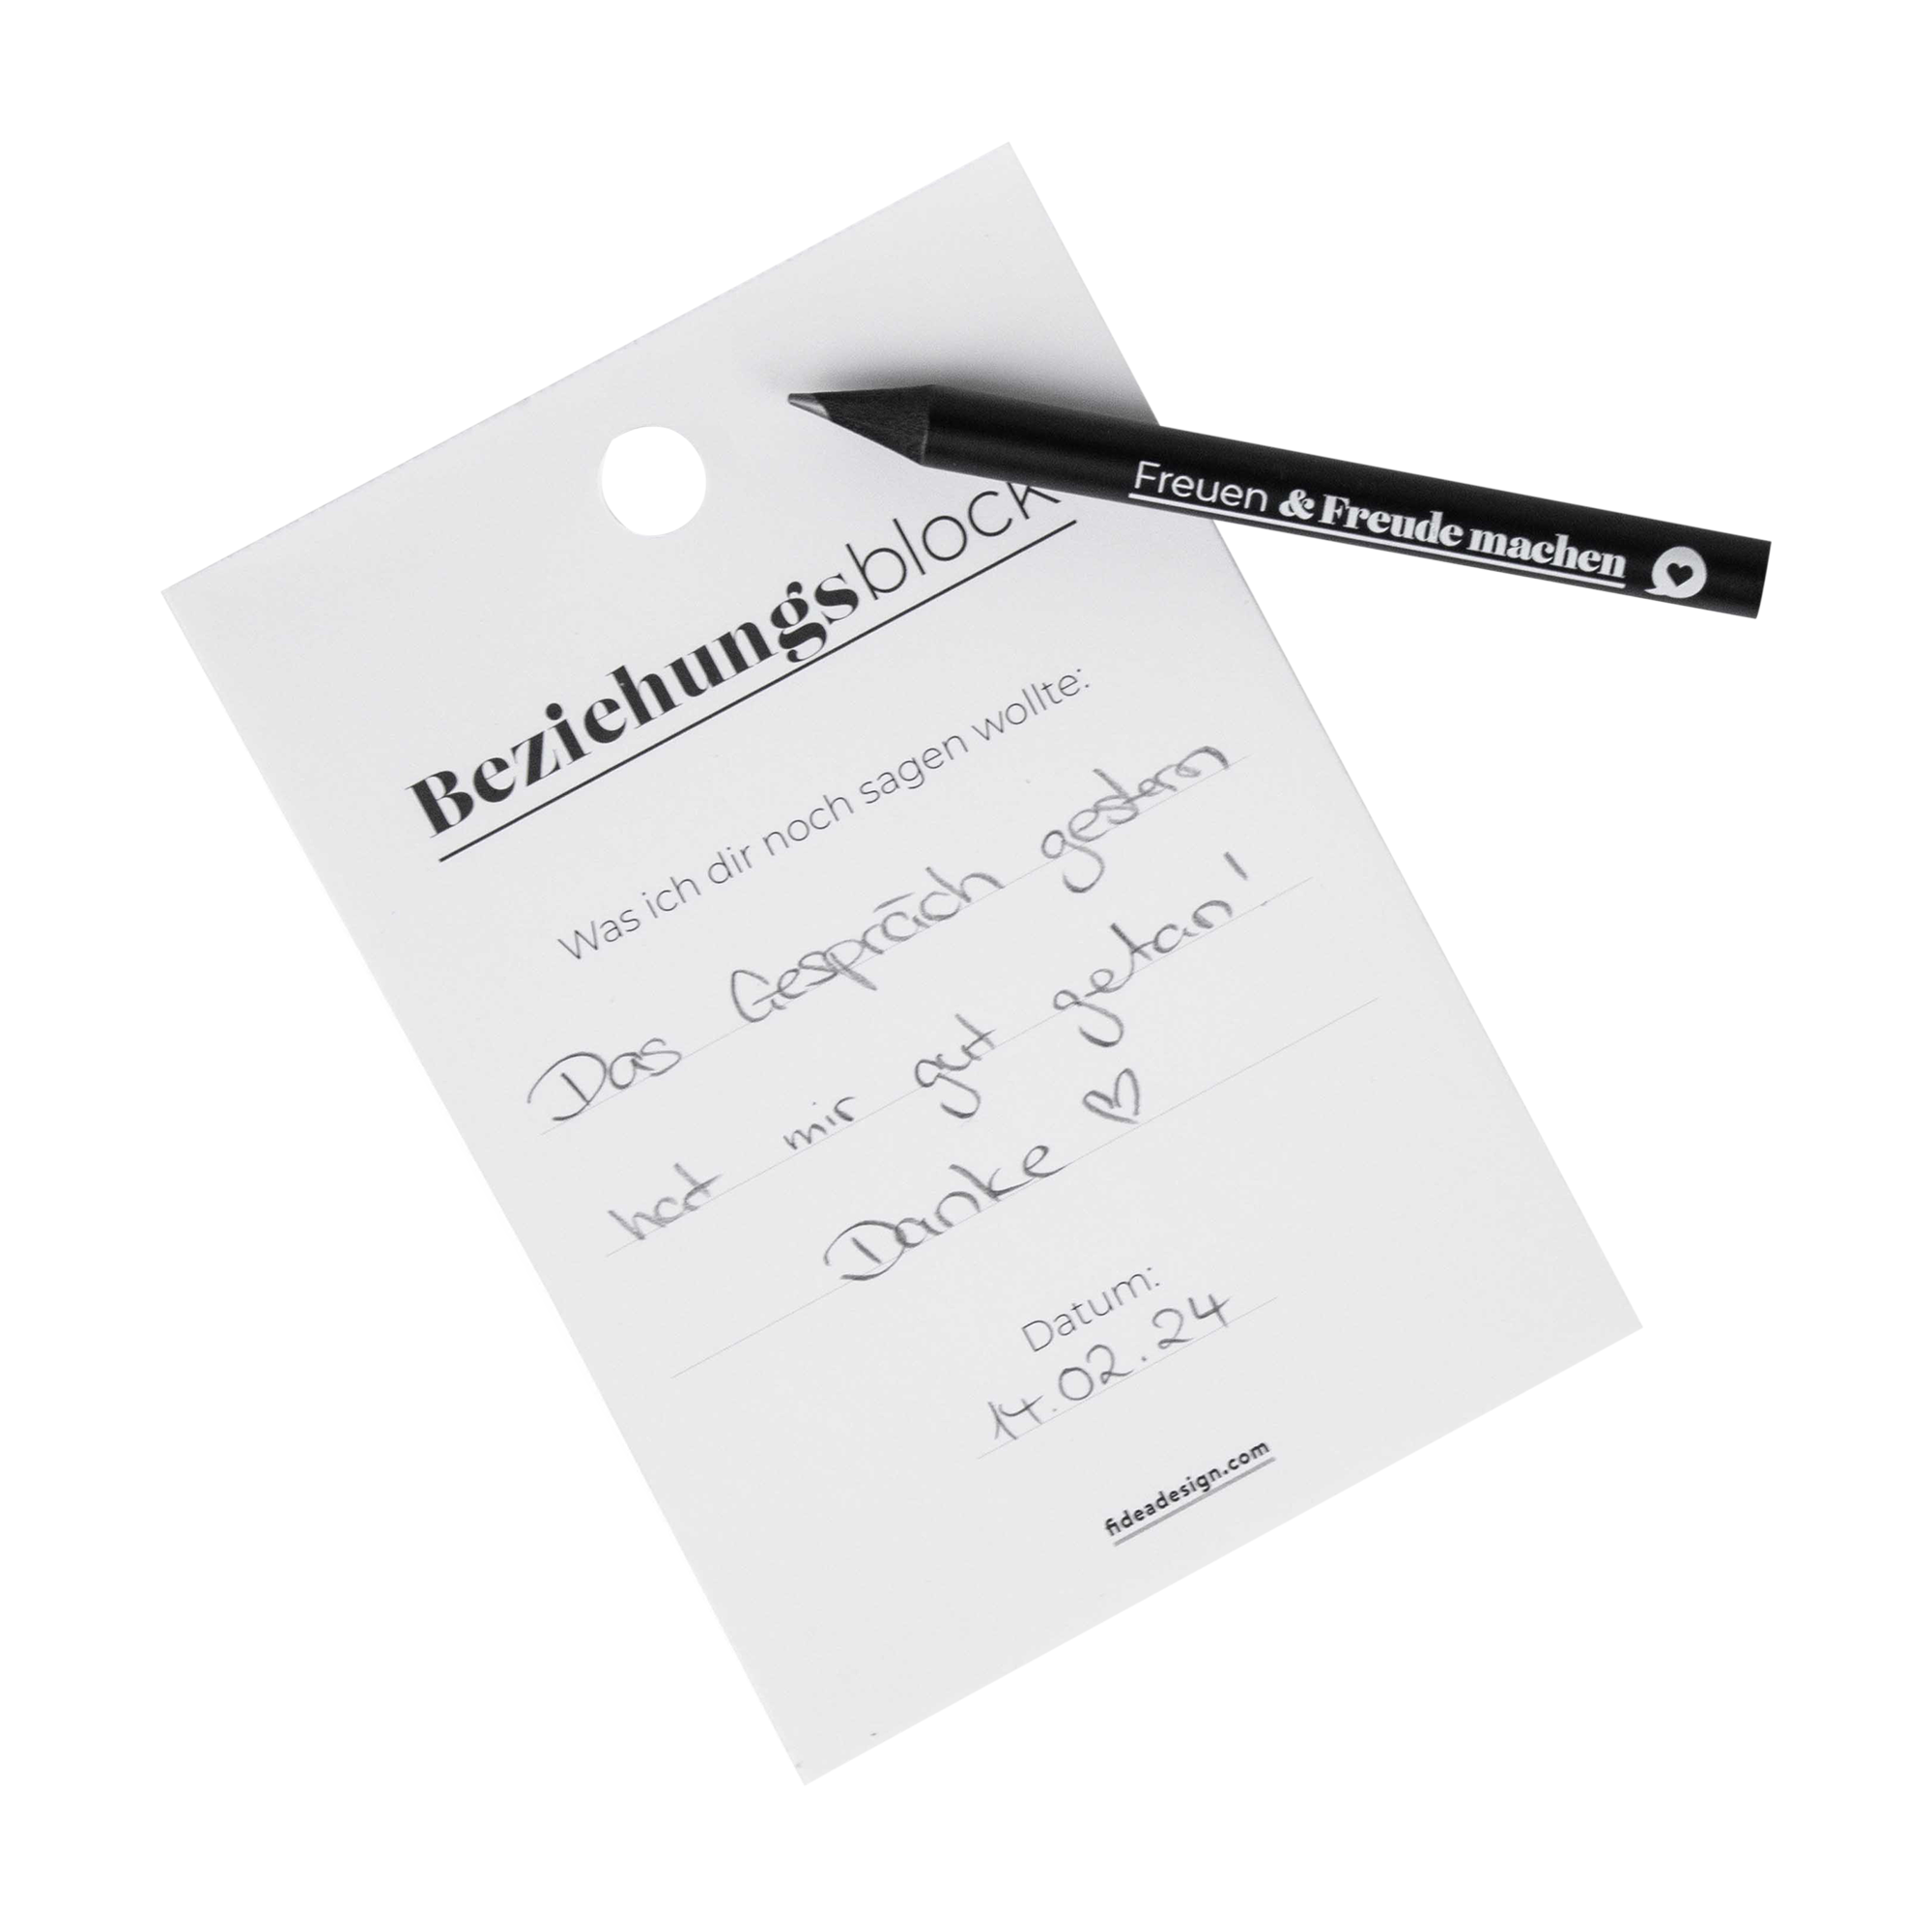 Beziehungsblock
Freuen & Freude machen
Was ich dir noch sagen wollte:
Das Gespräch gestern
hat mir gut getan!
Danke ♡
Datum:
14.02.24
fideadesign.com